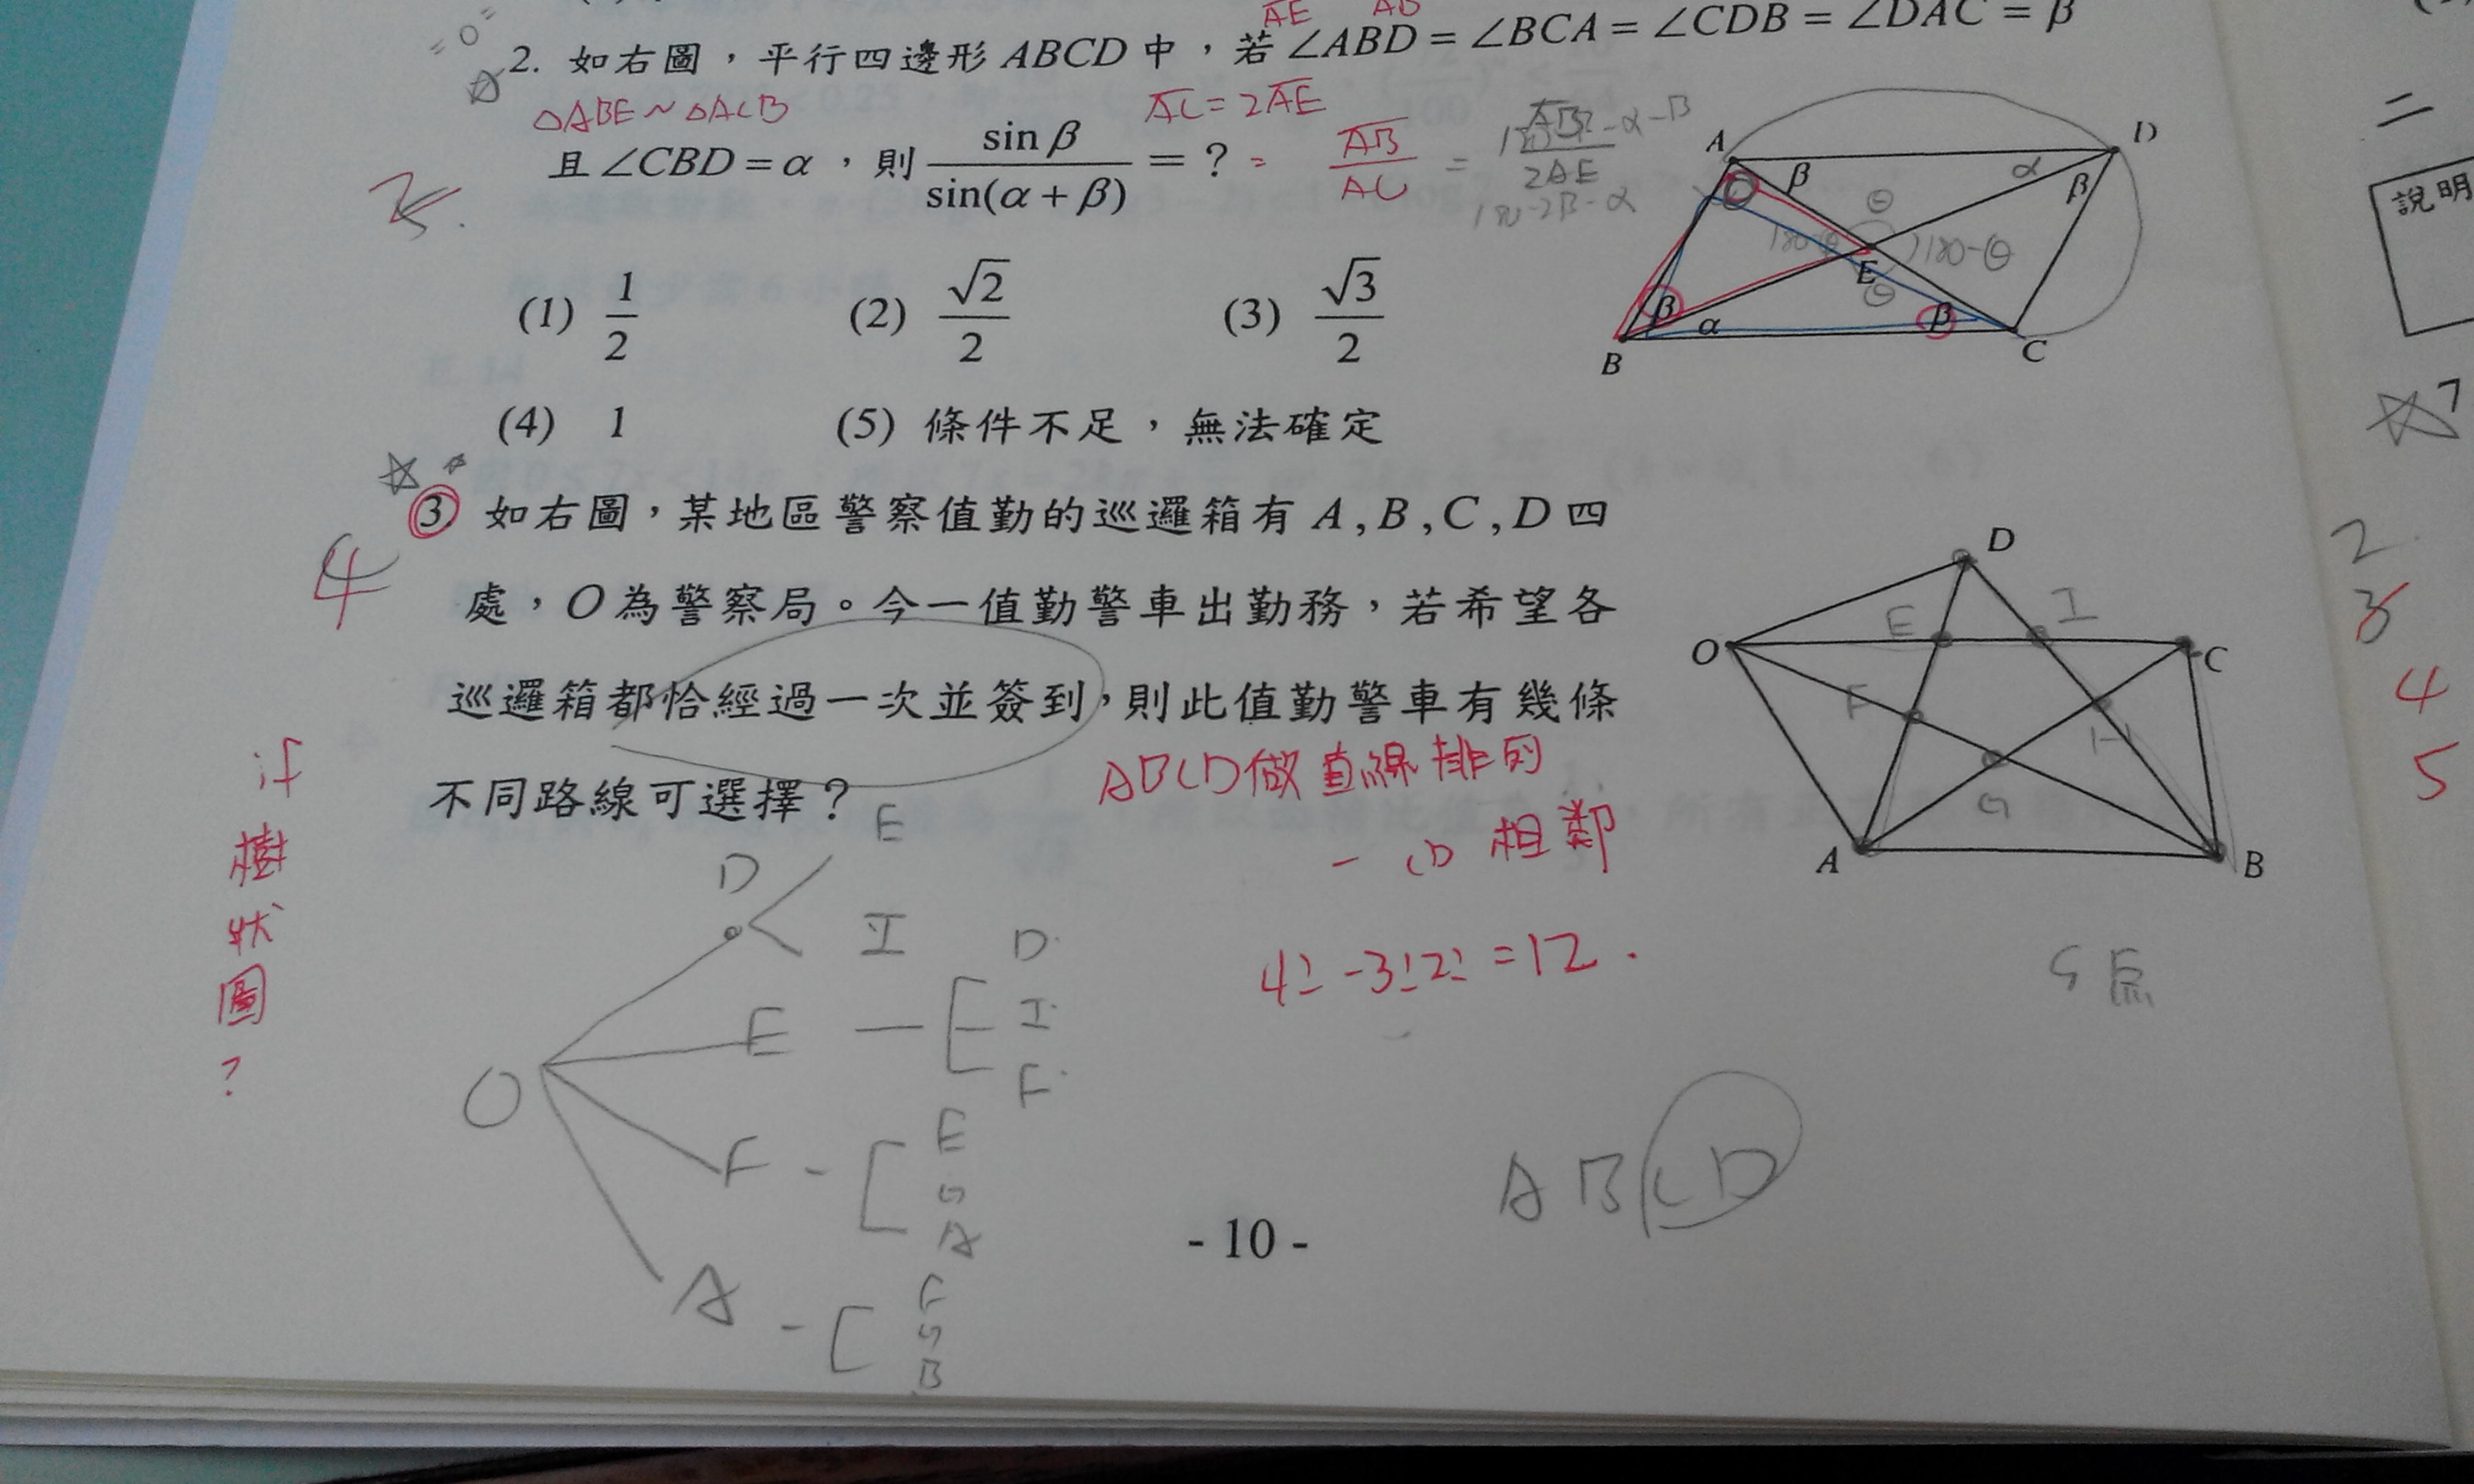 AE AD
2. 如右圖，平行四邊形 ABCD 中，若 ∠ABD = ∠BCA = ∠CDB = ∠DAC = β
△ABE ~ △ACB
AC = 2AE
且 ∠CBD = α ，則 sin β / sin(α + β) = ? = AB / AC = AB / 2AE
180-2β-α
(1) 1/2 (2) √2/2 (3) √3/2
(4) 1 (5) 條件不足，無法確定
A D
β α β
θ
180-θ 180-θ
E
θ
β α β
B C
3. 如右圖，某地區警察值勤的巡邏箱有 A , B , C , D 四
處，O 為警察局。今一值勤警車出勤務，若希望各
巡邏箱都恰經過一次並簽到，則此值勤警車有幾條
不同路線可選擇？
4
ABCD做直線排列
- CD 相鄰
4! -3!2! =12 .
D
O E I C
F H
G
A B
5 点
if
樹
狀
圖
?
O
D E
I
E D
I
F
F E
G
A
A F
G
B
A B C D
- 10 -
說明
二
7
2
3
4
5